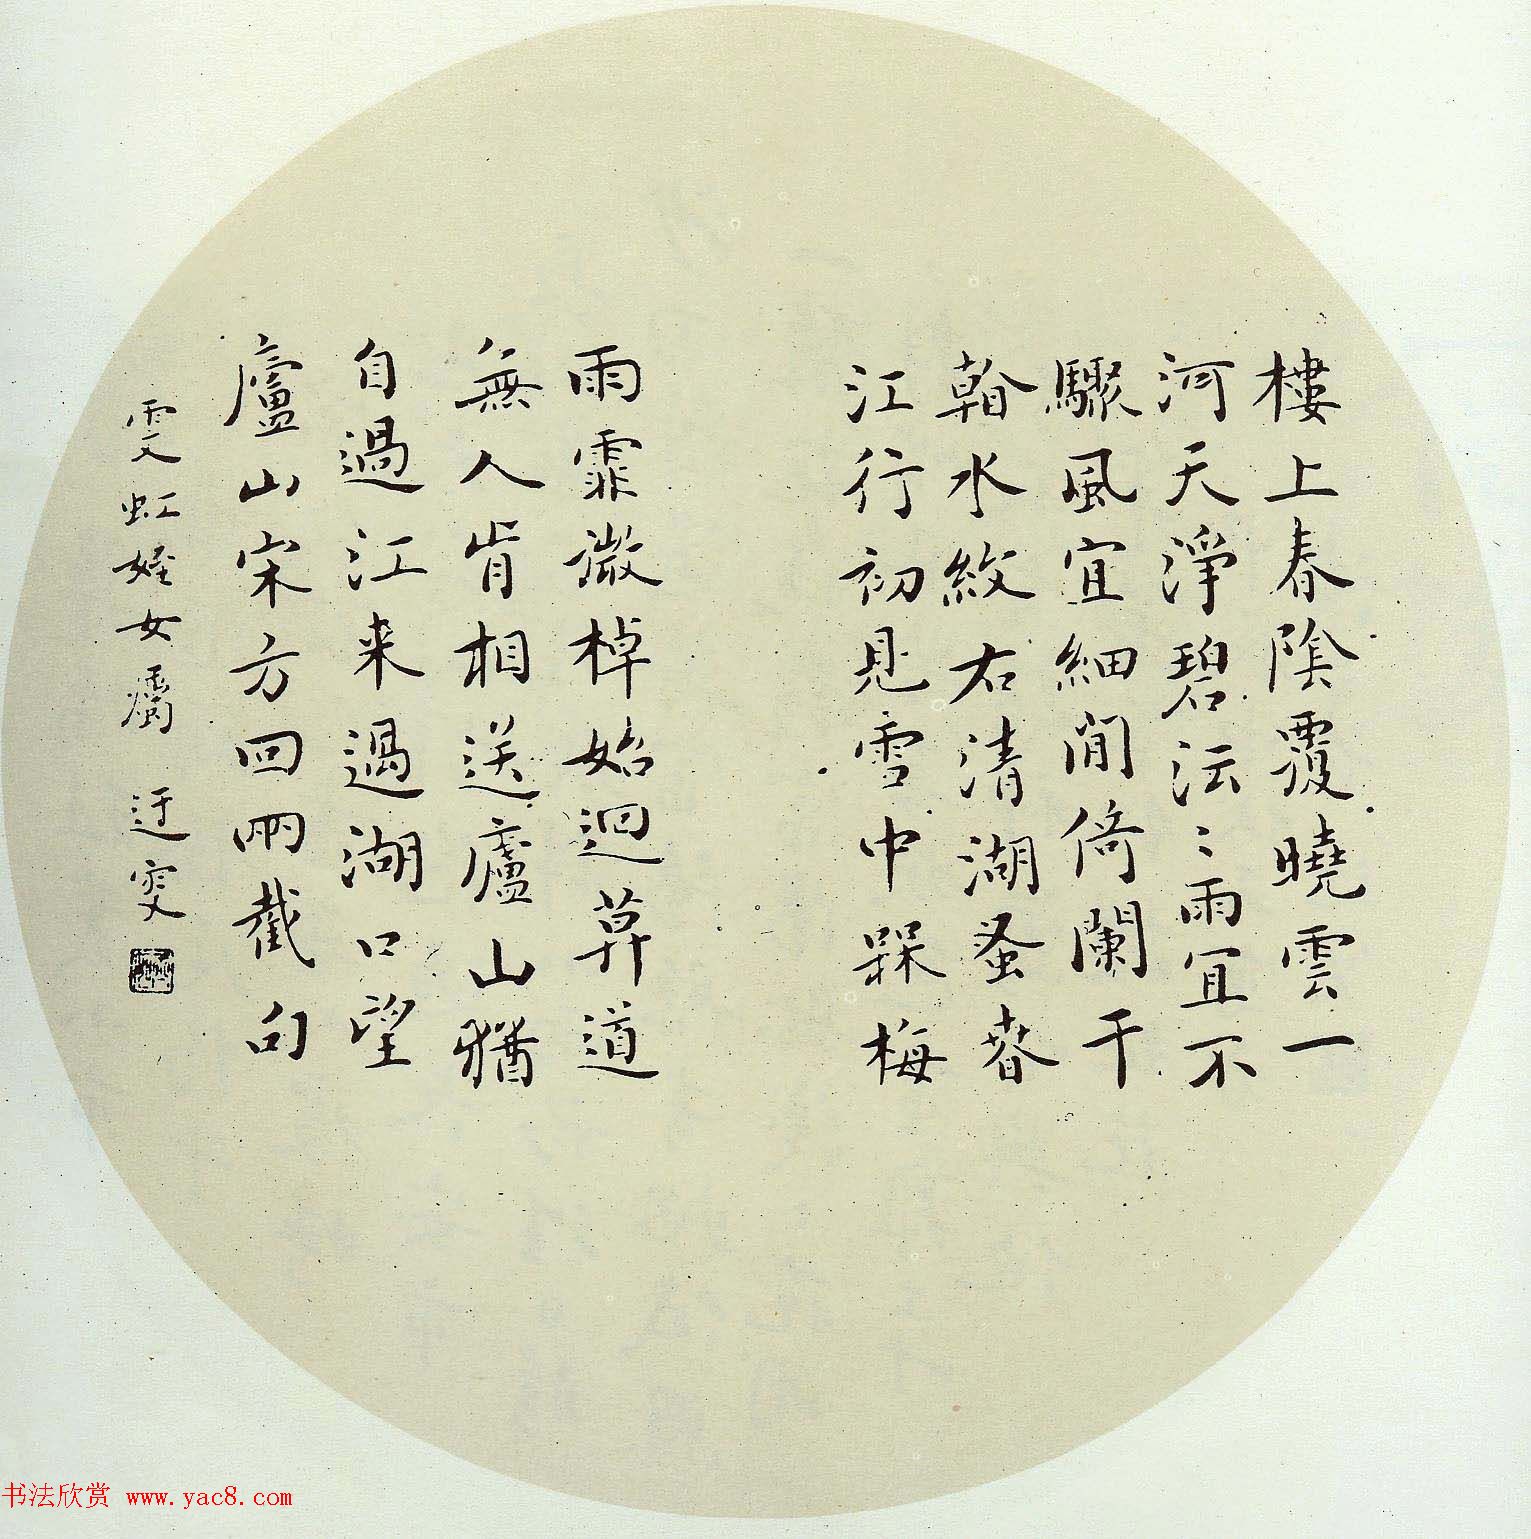 樓上春陰覆曉雲一
河天淨碧沄〻雨宜不
驟風宜細閒倚闌干
水紋右清湖蚤春
江行初見雪中梅
雨霏微棹始迴莫道
無人肯相送廬山猶
自過江来過湖口望
廬山宋方回兩截句
雯虹姪女屬 迂叟
书法欣赏 www.yac8.com